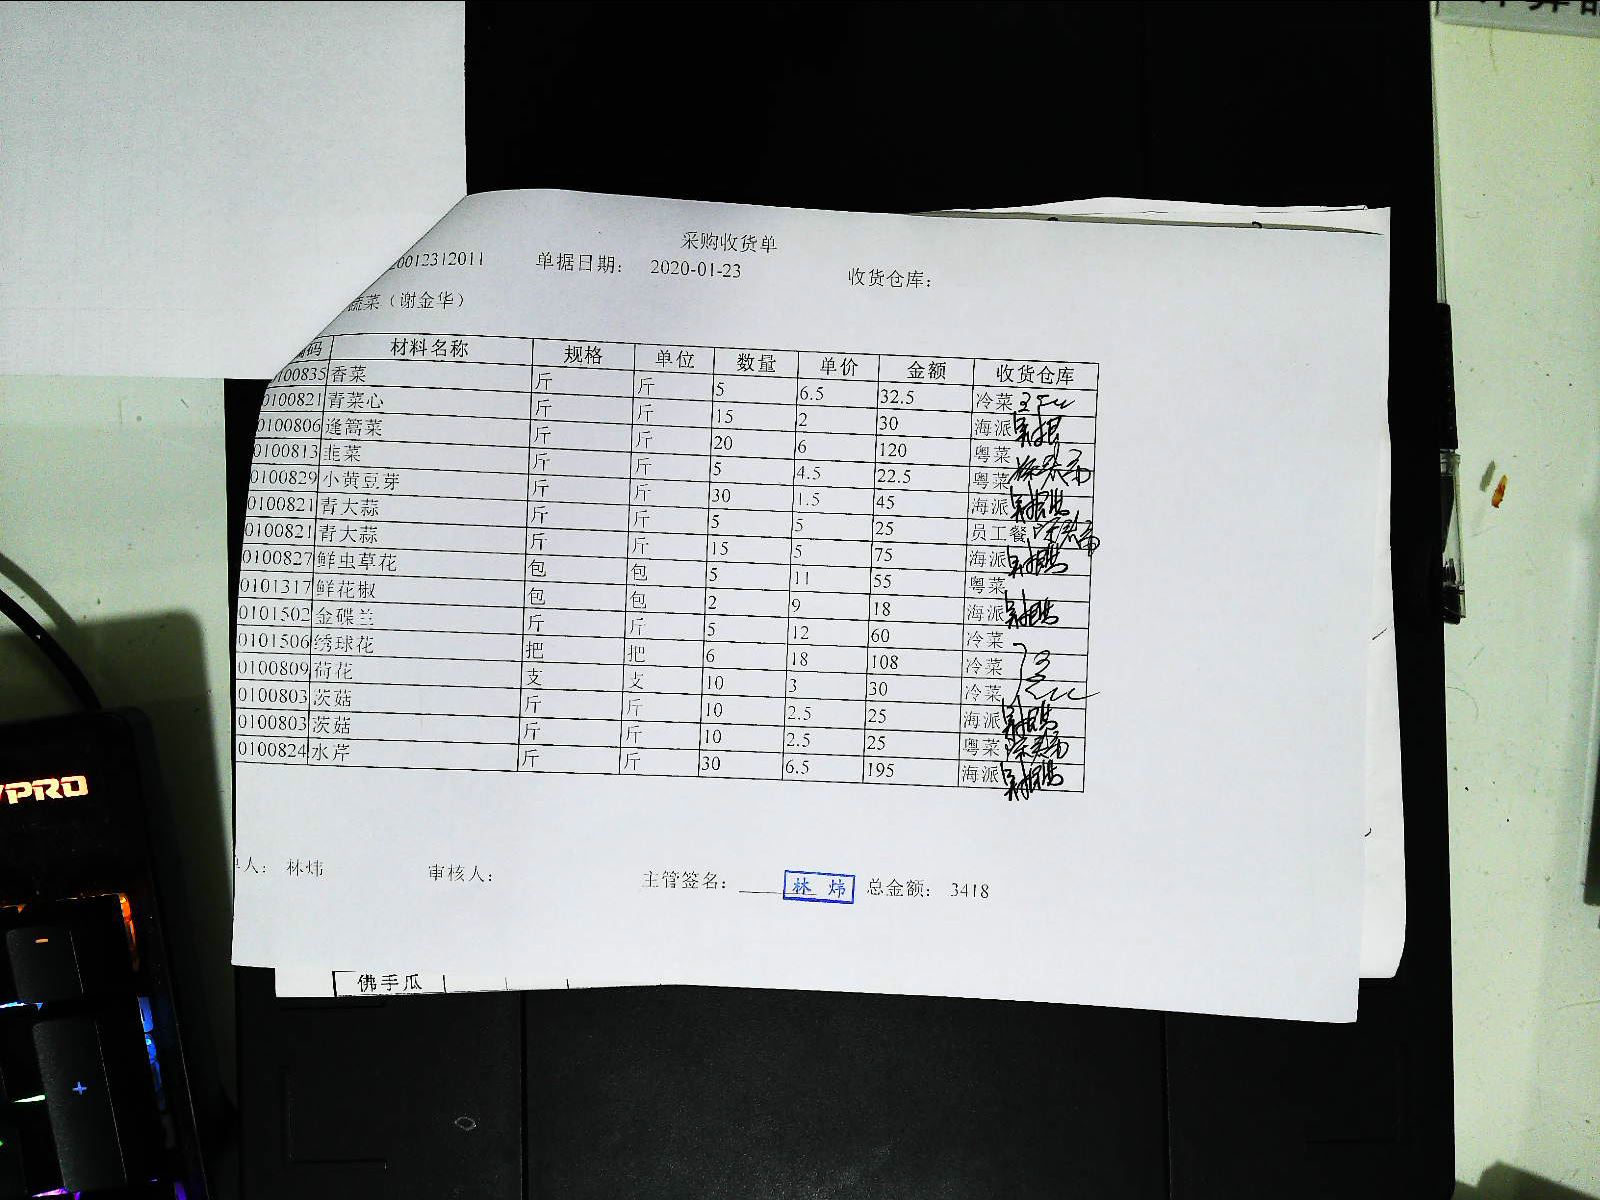 采购收货单
20012312011 单据日期： 2020-01-23 收货仓库：
蔬菜（谢金华）
编码 材料名称 规格 单位 数量 单价 金额 收货仓库
0100835 香菜 斤 斤 5 6.5 32.5 冷菜
0100821 青菜心 斤 斤 15 2 30 海派
0100806 逢蒿菜 斤 斤 20 6 120 粤菜
0100813 韭菜 斤 斤 5 4.5 22.5 粤菜
0100829 小黄豆芽 斤 斤 30 1.5 45 海派
0100821 青大蒜 斤 斤 5 5 25 员工餐
0100821 青大蒜 斤 斤 15 5 75 海派
0100827 鲜虫草花 包 包 5 11 55 粤菜
0101317 鲜花椒 包 包 2 9 18 海派
0101502 金碟兰 斤 斤 5 12 60 冷菜
0101506 绣球花 把 把 6 18 108 冷菜
0100809 荷花 支 支 10 3 30 冷菜
0100803 茨菇 斤 斤 10 2.5 25 海派
0100803 茨菇 斤 斤 10 2.5 25 粤菜
0100824 水芹 斤 斤 30 6.5 195 海派
人： 林炜 审核人： 主管签名： 林 炜 总金额： 3418
佛手瓜
PRO